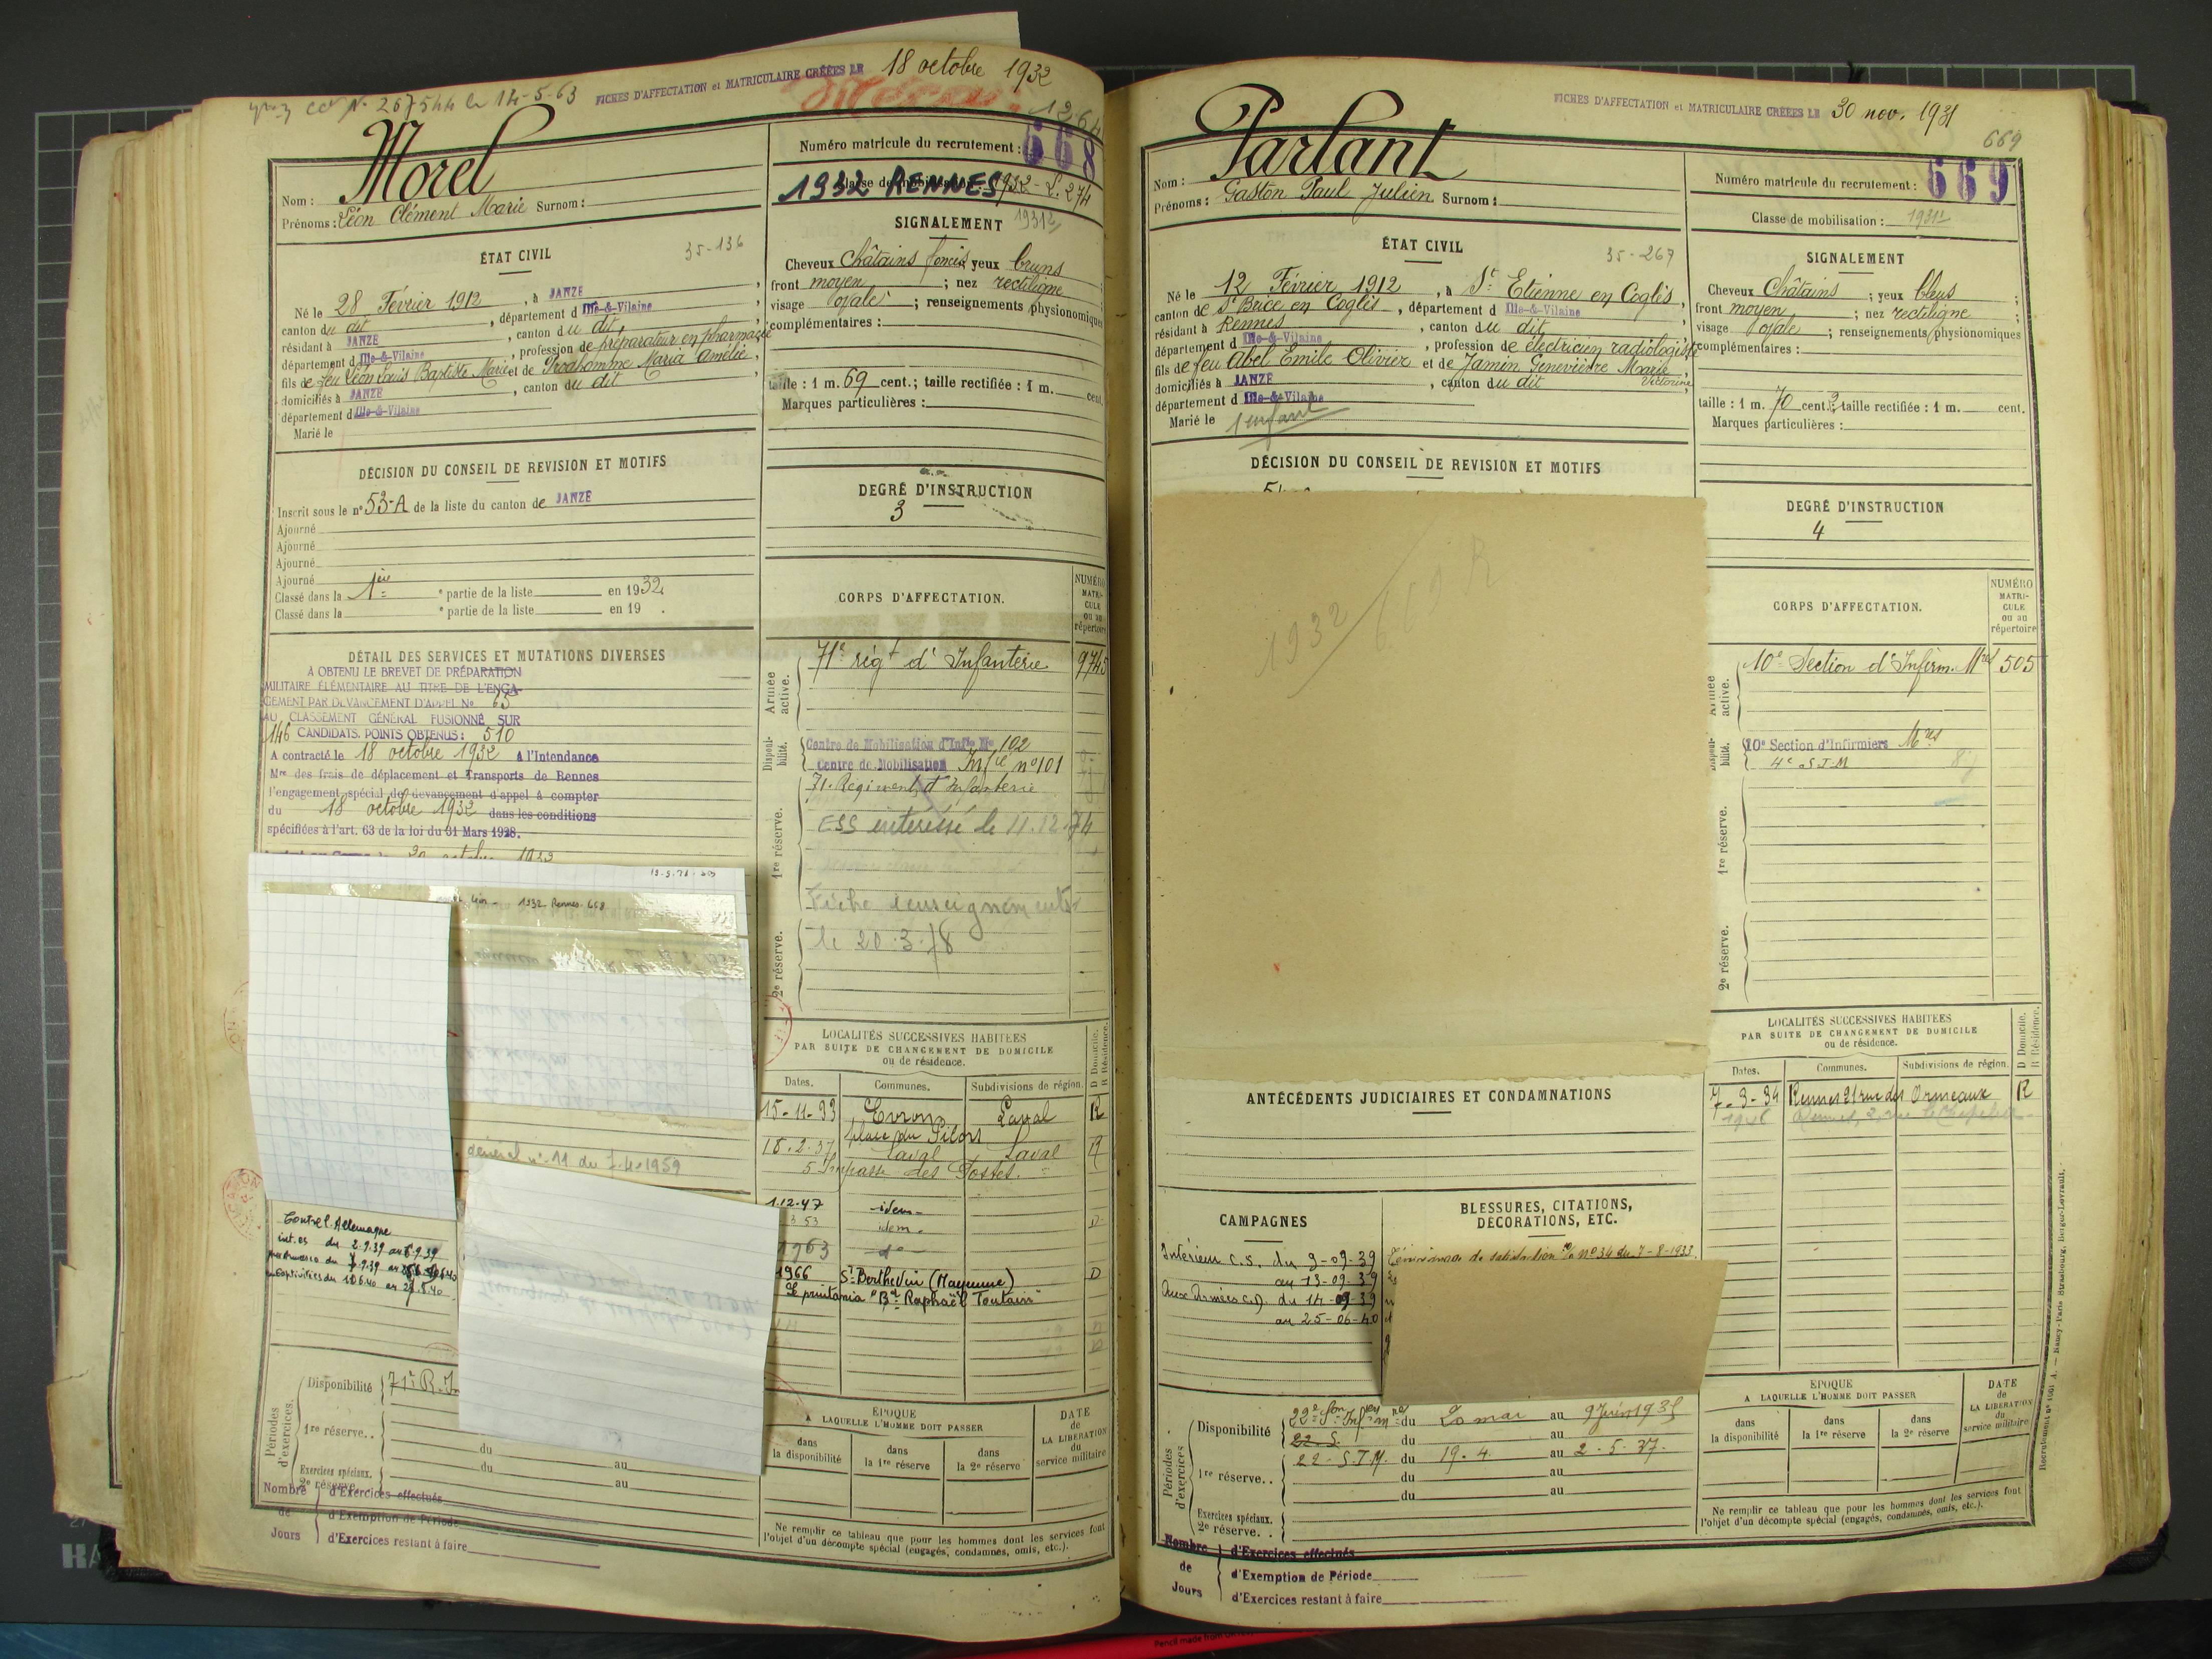 FICHES D'AFFECTATION et MATRICULAIRE CRÉÉES LE 18 octobre 1932
N° 267544 le 14-5-63
Nom : Morel
Prénoms : Léon Clément Marie Surnom :
ÉTAT CIVIL
35-136
Né le 28 Février 1912, à JANZE,
canton du dit, département d Ille-&-Vilaine,
résidant à JANZE, canton du dit,
département d Ille-&-Vilaine, profession de préparateur en pharmacie
fils de feu Léon Louis Baptiste Marie et de Prodhomme Maria Amélie,
domiciliés à JANZE, canton du dit
département d Ille-&-Vilaine
Marié le
DÉCISION DU CONSEIL DE REVISION ET MOTIFS
Inscrit sous le n° 53-A de la liste du canton de JANZE
Ajourné
Ajourné
Ajourné
Ajourné
Classé dans la 1ère partie de la liste en 1932
Classé dans la e partie de la liste en 19 .
DÉTAIL DES SERVICES ET MUTATIONS DIVERSES
A OBTENU LE BREVET DE PRÉPARATION
MILITAIRE ÉLÉMENTAIRE AU TITRE DE L'ENGA-
GEMENT PAR DEVANCEMENT D'APPEL No 63
AU CLASSEMENT GÉNÉRAL FUSIONNÉ SUR
146 CANDIDATS. POINTS OBTENUS : 510
A contracté le 18 octobre 1932 à l'Intendance
Mre des frais de déplacement et Transports de Rennes
l'engagement spécial de devancement d'appel à compter
du 18 octobre 1932 dans les conditions
spécifiées à l'art. 63 de la loi du 31 Mars 1928.
1932 Rennes 668
général n° 11 du 7-4-1959
Contre l'Allemagne
int. es du 2.9.39 au 6.9.39
Périodes d'exercices.
Disponibilité
1re réserve..
du au
du au
Exercices spéciaux.
2e réserve.
Nombre de Jours
d'Exercices effectués
d'Exemption de Période
d'Exercices restant à faire
Numéro matricule du recrutement : 668
Classe de mobilisation : 1932
1932 RENNES
SIGNALEMENT
Cheveux châtains foncés yeux bruns
front moyen ; nez rectiligne
visage ovale ; renseignements physionomiques
complémentaires :
taille : 1 m. 69 cent.; taille rectifiée : 1 m. cent.
Marques particulières :
DEGRÉ D'INSTRUCTION
3
CORPS D'AFFECTATION.
NUMÉRO MATRI-CULE ou au répertoire
Armée active.
71e régt d'Infanterie 9745
Disponibilité.
Centre de Mobilisation d'Infie No 102
Centre de Mobilisation Infie n° 101
1re réserve.
71. Régiment d'Infanterie
ESS intéressé le 11.12.74
Fiche renseignements
le 20.3.78
2e réserve.
LOCALITÉS SUCCESSIVES HABITÉES
PAR SUITE DE CHANGEMENT DE DOMICILE
ou de résidence.
D Domicile. R Résidence.
Dates. Communes. Subdivisions de région.
15-11-33 Evron Laval R
place du Pilori
15-2-37 Laval Laval R
5 Impasse des Fossés.
1.12.47 idem
3 53 idem. D
1963 do
1966 St Berthevin (Mayenne) D
Bd Raphaël Toutain
ÉPOQUE
A LAQUELLE L'HOMME DOIT PASSER
dans la disponibilité
dans la 1re réserve
dans la 2e réserve
DATE de LA LIBÉRATION du service militaire
Ne remplir ce tableau que pour les hommes dont les services font
l'objet d'un décompte spécial (engagés, condamnés, omis, etc.).
FICHES D'AFFECTATION et MATRICULAIRE CRÉÉES LE 30 nov. 1931
669
Nom : Parlant
Prénoms : Gaston Paul Julien Surnom :
ÉTAT CIVIL
35-267
Né le 12 Février 1912, à St Etienne en Coglès,
canton de St Brice en Coglès, département d Ille-&-Vilaine
résidant à Rennes, canton du dit
département d Ille-&-Vilaine, profession de électricien radiologiste
fils de feu Abel Emile Olivier et de Jamin Geneviève Marie Victorine,
domiciliés à JANZE, canton du dit
département d Ille-&-Vilaine
Marié le 1 enfant
DÉCISION DU CONSEIL DE REVISION ET MOTIFS
1932 / 669 R
ANTÉCÉDENTS JUDICIAIRES ET CONDAMNATIONS
CAMPAGNES
Intérieur C.S. du 9-09-39
au 13-09-39
Aux Armées C.D. du 14-09-39
au 25-06-40
BLESSURES, CITATIONS,
DÉCORATIONS, ETC.
Témoignage de satisfaction n° 34 du 7-8-1933
Périodes d'exercices
Disponibilité
du 20 mai au 9 Juin 1935
22. S. du au
22 - S.I.M. du 19.4. au 2.5.37.
1re réserve..
du au
du au
Exercices spéciaux.
2e réserve..
Nombre de Jours
d'Exercices effectués
d'Exemption de Période
d'Exercices restant à faire
Numéro matricule du recrutement : 669
Classe de mobilisation : 1931
SIGNALEMENT
Cheveux châtains ; yeux bleus ;
front moyen ; nez rectiligne
visage ovale ; renseignements physionomiques
complémentaires :
taille : 1 m. 70 cent.; taille rectifiée : 1 m. cent.
Marques particulières :
DEGRÉ D'INSTRUCTION
4
CORPS D'AFFECTATION.
NUMÉRO MATRI-CULE ou au répertoire
Armée active.
10e Section d'Infirm. Mres 505
Disponibilité.
10e Section d'Infirmiers Mres
4e S I M
1re réserve.
2e réserve.
LOCALITÉS SUCCESSIVES HABITÉES
PAR SUITE DE CHANGEMENT DE DOMICILE
ou de résidence.
D Domicile. R Résidence.
Dates. Communes. Subdivisions de région
7-3-34 Rennes 21 rue des Ormeaux R
ÉPOQUE
A LAQUELLE L'HOMME DOIT PASSER
dans la disponibilité
dans la 1re réserve
dans la 2e réserve
DATE de LA LIBÉRATION du service militaire
Ne remplir ce tableau que pour les hommes dont les services font
l'objet d'un décompte spécial (engagés, condamnés, omis, etc.).